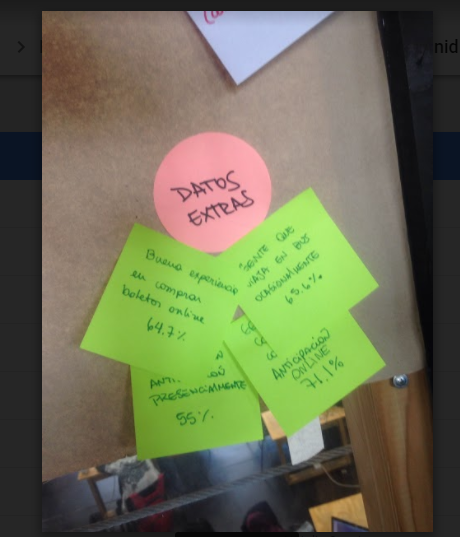 DATOS
EXTRAS
Buena experiencia
en comprar
boletos online
64.7%
GENTE QUE
VIAJA EN BUS
OCASIONALMENTE
65.6%
PRESENCIALMENTE
55%
ANTICIPACIÓN
ONLINE
71.1%